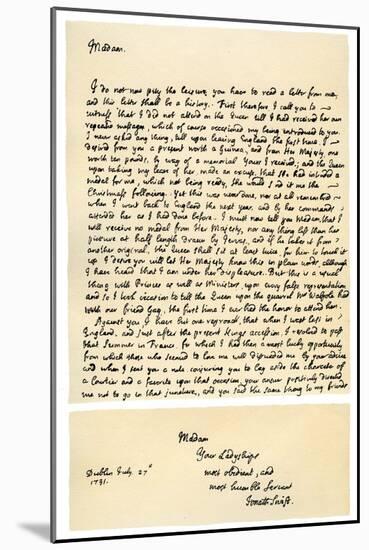 Madam.
I do not now pity the leisure you have to read a letter from me,
and this letter shall be a history. First therefore I call you to
witness that I did not attend on the Queen till I had received her own
repeated messages, which of course occasioned my being introduced to you.
I never asked any thing till upon leaving England the first time, I
desired from you a present worth a Guinea, and from Her Majesty one
worth ten pounds, by way of a memorial. Yours I received; and the Queen
upon taking my leave of her, made an excuse, that she had intended a
medal for me, which not being ready, she would send it me the
Christmass following. Yet this was never done, nor at all remembred
when I went back to England the next year, and by her commands
attended her as I had done before. I must now tell you Madam, that I
will receive no medal from Her Majesty, nor any thing less than her
picture at half length drawn by Jervas, and if he takes it from
another original, the Queen shall sit at least twice, for him to touch it
up. I desire you will let Her Majesty know this in plain words, although
I have heard that I am under her displeasure. But this is a usual
thing with Princes as well as Ministers, upon every false representation
and so I took occasion to tell the Queen upon the quarrel Mr Walpole had
with our friend Gay, the first time I ever had the honor to attend her.
Against you I have but one reproach, that when I was last in
England, and just after the present King's accession, I resolved to pass
that Summer in France, for which I had then a most lucky opportunity
from which those who seemed to love me well disuaded me by your advice
and when I sent you a note conjuring you to lay aside the character of
a Courtier and a favorite upon that occasion, your answer positively directed
me not to go in that juncture, and you said the same thing to my friends
Madam
Your Ladyships
most obedient, and
most humble Servant
Jonath: Swift.
Dublin July. 27th
1731.